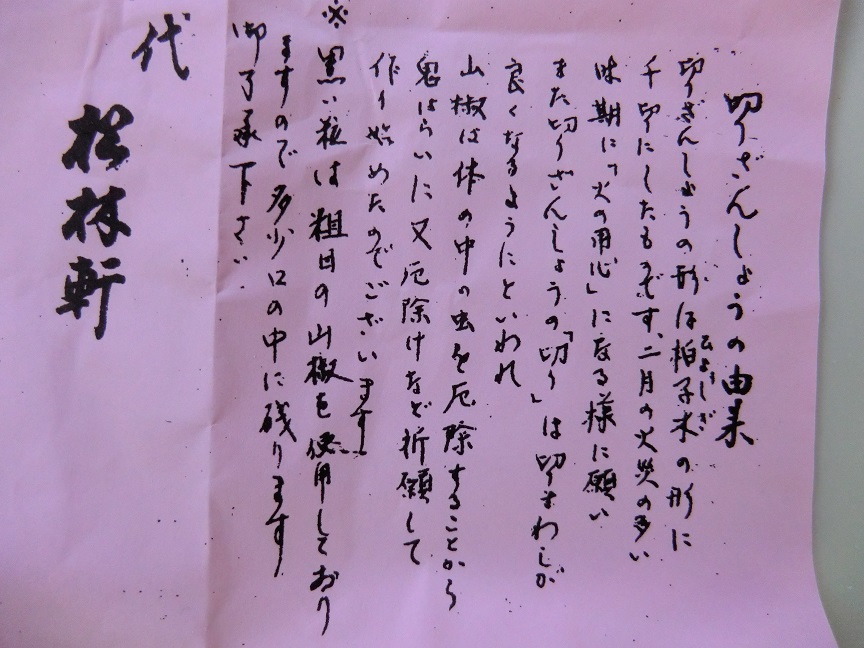 切りざんしょうの由来
切りざんしょうの形は拍子木の形に
ひょうしぎ
千切にしたものです、二月の火災の多い
時期に「火の用心」になる様に願い
また切りざんしょうの「切り」は切りまわしが
良くなるようにといわれ
山椒は体の中の虫を厄除することから
鬼はらいに又厄除けなど祈願して
作り始めたのでございます
※黒い粒は粗目の山椒を使用しており
ますので多少口の中に残ります
御了承下さい。
代
松林軒